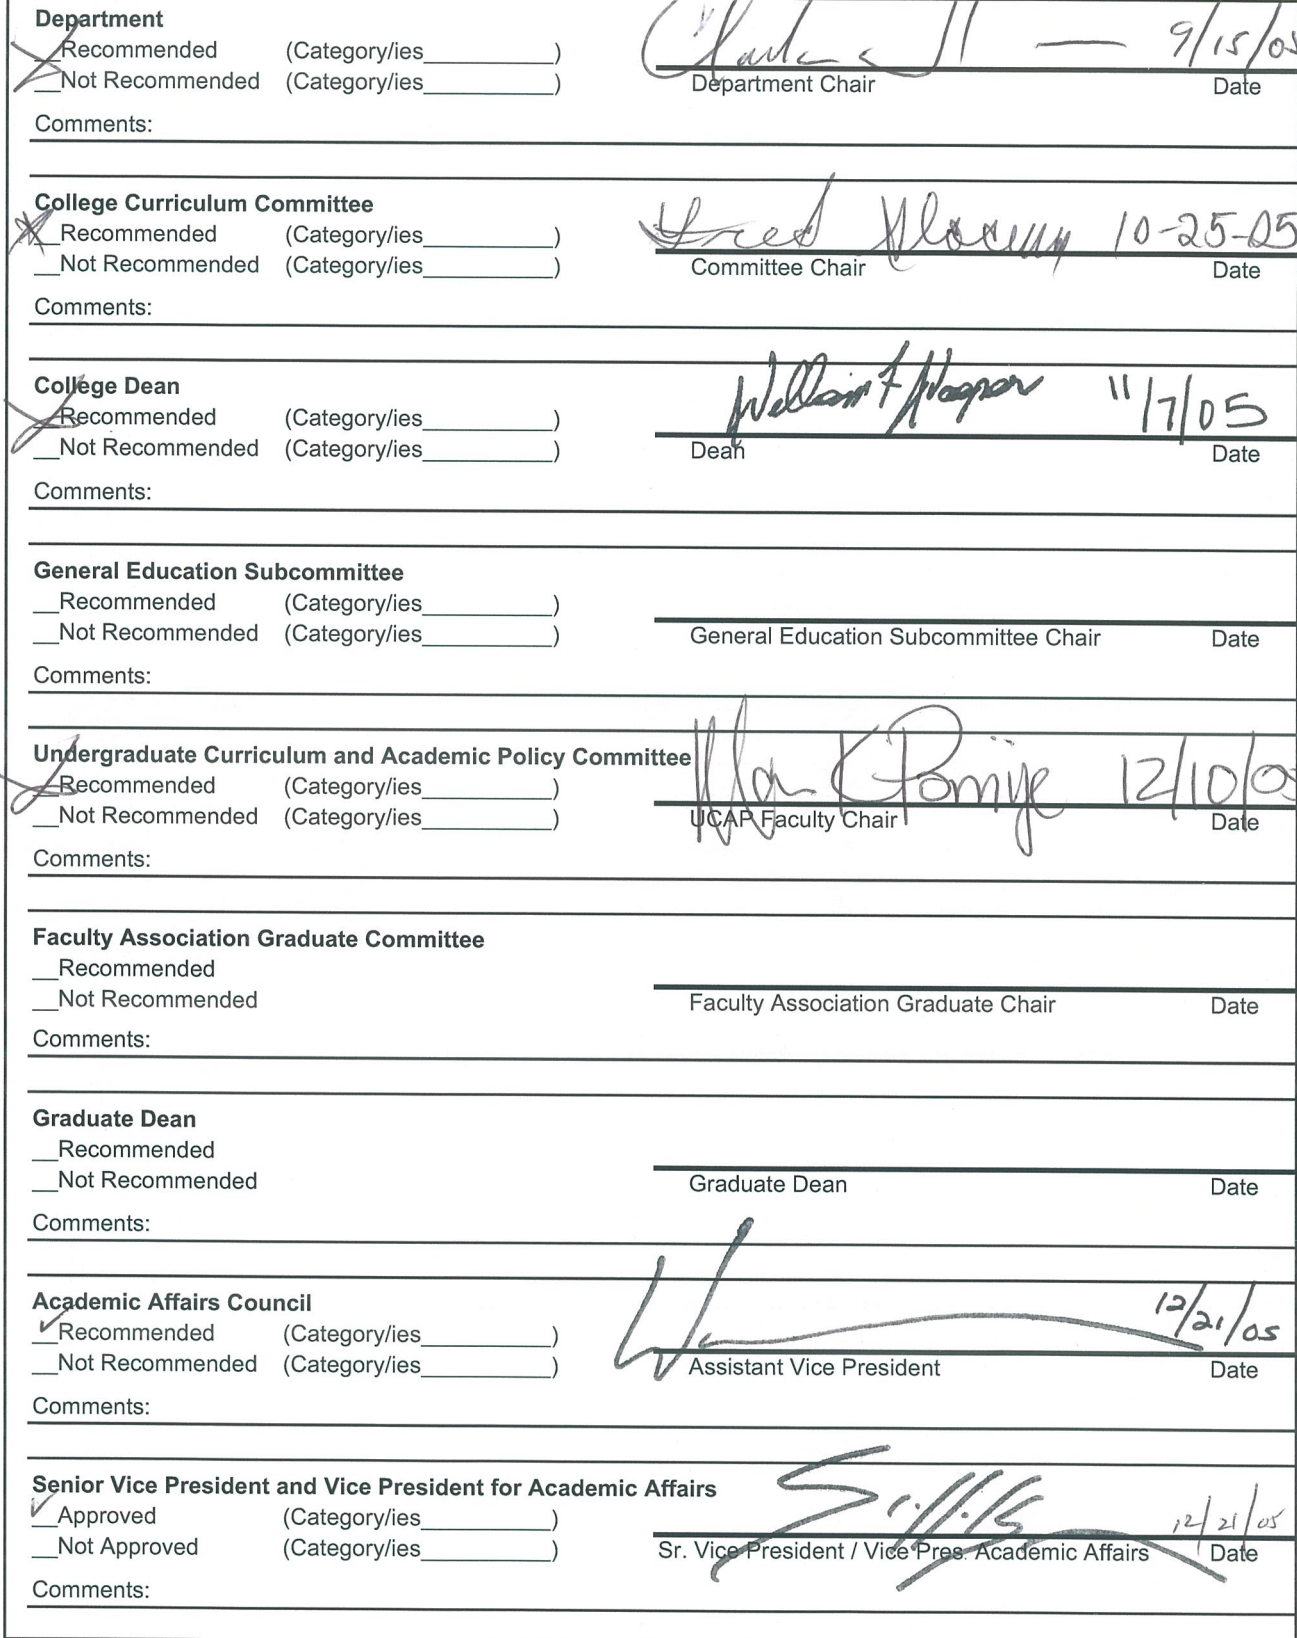 Department
__Recommended (Category/ies__________)
__Not Recommended (Category/ies__________)
Department Chair Date
9/15/05
Comments:
College Curriculum Committee
__Recommended (Category/ies__________)
__Not Recommended (Category/ies__________)
Fred Slocum 10-25-05
Committee Chair Date
Comments:
College Dean
__Recommended (Category/ies__________)
__Not Recommended (Category/ies__________)
William F 11/7/05
Dean Date
Comments:
General Education Subcommittee
__Recommended (Category/ies__________)
__Not Recommended (Category/ies__________)
General Education Subcommittee Chair Date
Comments:
Undergraduate Curriculum and Academic Policy Committee
__Recommended (Category/ies__________)
__Not Recommended (Category/ies__________)
12/10/05
UCAP Faculty Chair Date
Comments:
Faculty Association Graduate Committee
__Recommended
__Not Recommended
Faculty Association Graduate Chair Date
Comments:
Graduate Dean
__Recommended
__Not Recommended
Graduate Dean Date
Comments:
Academic Affairs Council
__Recommended (Category/ies__________)
__Not Recommended (Category/ies__________)
12/21/05
Assistant Vice President Date
Comments:
Senior Vice President and Vice President for Academic Affairs
__Approved (Category/ies__________)
__Not Approved (Category/ies__________)
12/21/05
Sr. Vice President / Vice Pres. Academic Affairs Date
Comments: